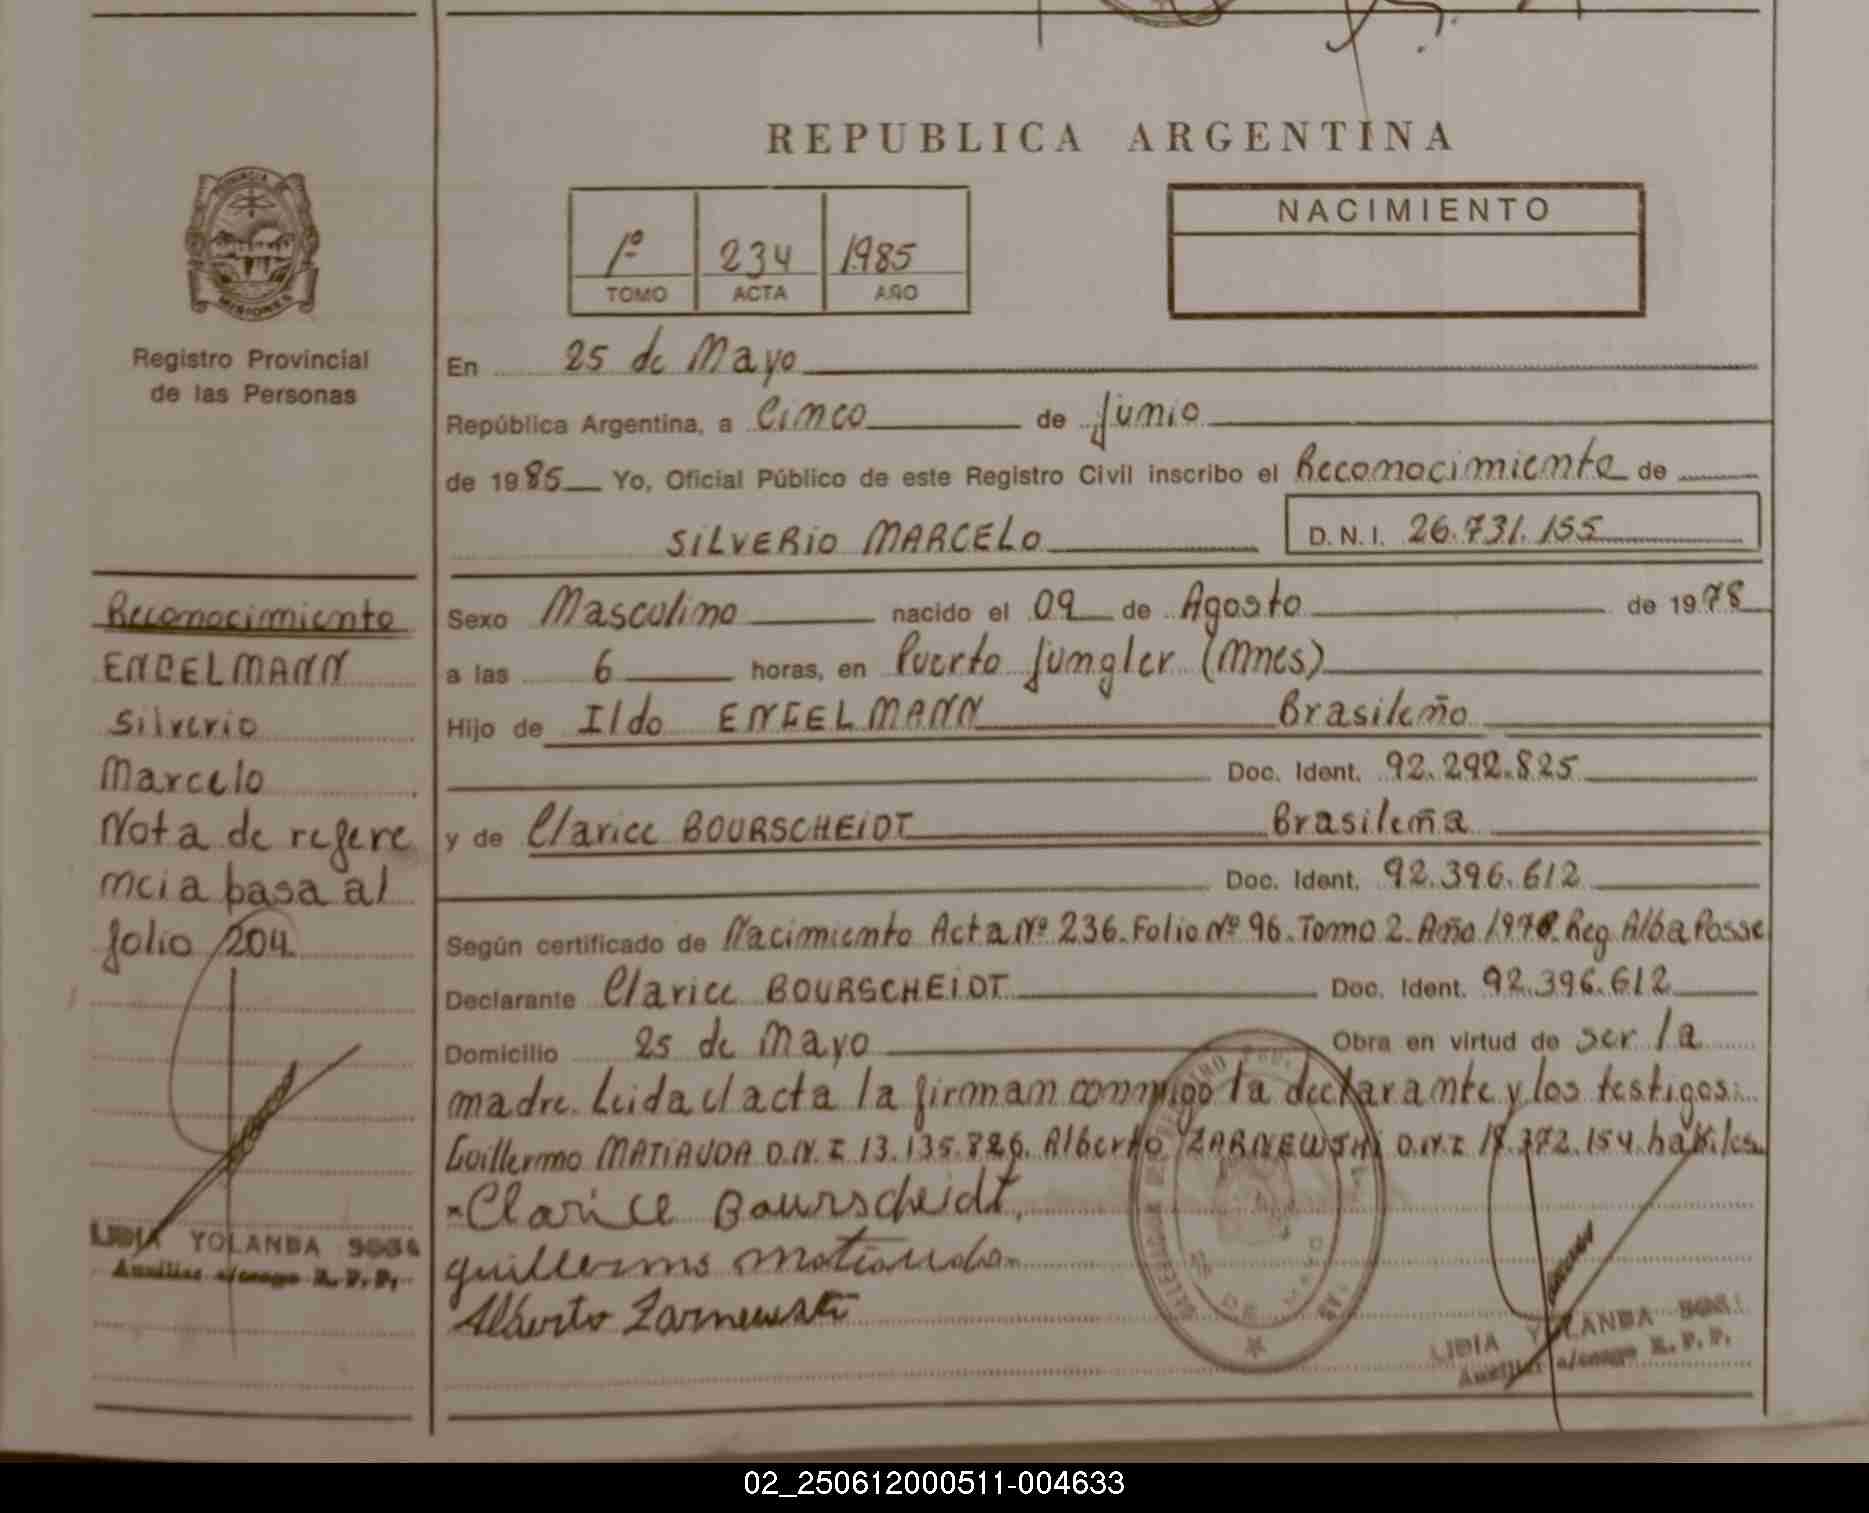 REPUBLICA ARGENTINA
PROVINCIA
MISIONES
Registro Provincial
de las Personas
1º 234 1985
TOMO ACTA AÑO
NACIMIENTO
En 25 de Mayo
República Argentina, a Cinco de Junio
de 1985 Yo, Oficial Público de este Registro Civil inscribo el Reconocimiento de
SILVERIO MARCELO D.N.I. 26.731.155
Sexo Masculino nacido el 09 de Agosto de 1978
a las 6 horas, en Puerto Jungler (Mnes)
Hijo de Ildo ENGELMANN Brasileño
Doc. Ident. 92.292.825
y de Clarice BOURSCHEIDT Brasileña
Doc. Ident. 92.396.612
Según certificado de Nacimiento Acta Nº 236. Folio Nº 96. Tomo 2. Año 1978. Reg. Alba Posse
Declarante Clarice BOURSCHEIDT Doc. Ident. 92.396.612
Domicilio 25 de Mayo Obra en virtud de ser la
madre. Leida el acta la firman conmigo la declarante y los testigos:
Guillermo MATIAUDA D.N.I 13.135.826. Alberto ZARNEWSKI D.N.I 18.372.154. habiles
Clarice Bourscheidt.
guillermo matiauda
Alberto Zarnewski
LIDIA YOLANDA
Auxiliar a/cargo R. P. P.
Reconocimiento
ENGELMANN
Silverio
Marcelo
Nota de refere
ncia pasa al
folio 204
LIDIA YOLANDA
Auxiliar a/cargo R. P. P.
02_250612000511-004633